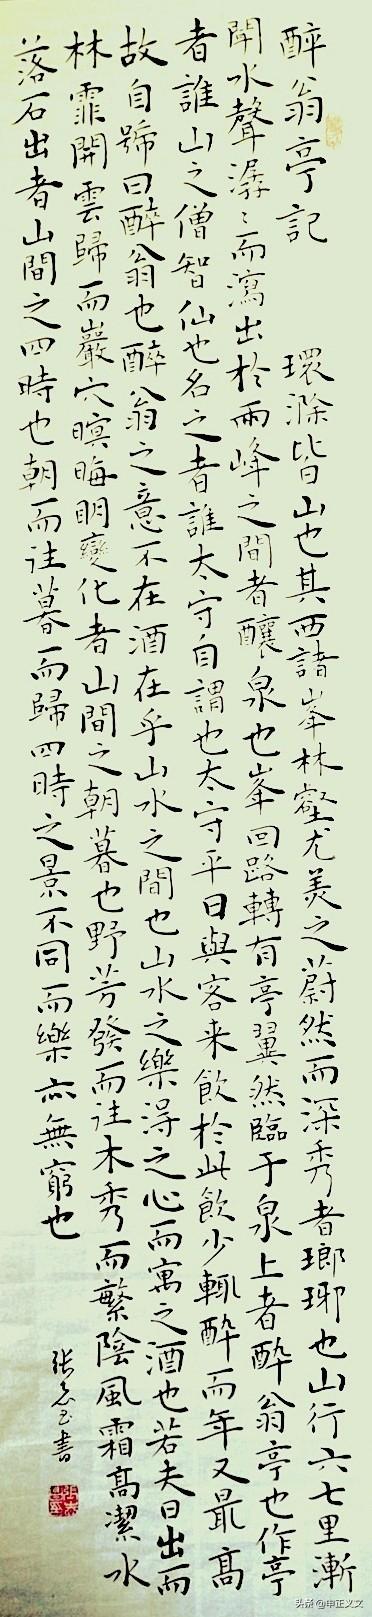 醉翁亭記 環滁皆山也其西諸峯林壑尤美之蔚然而深秀者瑯琊也山行六七里漸
聞水聲潺〻而瀉出於兩峰之間者釀泉也峯回路轉有亭翼然臨于泉上者醉翁亭也作亭
者誰山之僧智仙也名之者誰太守自謂也太守平日與客来飲於此飲少輒醉而年又最高
故自號曰醉翁也醉翁之意不在酒在乎山水之間也山水之樂淂之心而寓之酒也若夫日出而
林霏開雲歸而巖穴暝晦明變化者山間之朝暮也野芳發而往木秀而繁陰風霜高潔水
落石出者山間之四時也朝而往暮而歸四時之景不同而樂亦無窮也
张玉書
头条@申正义文